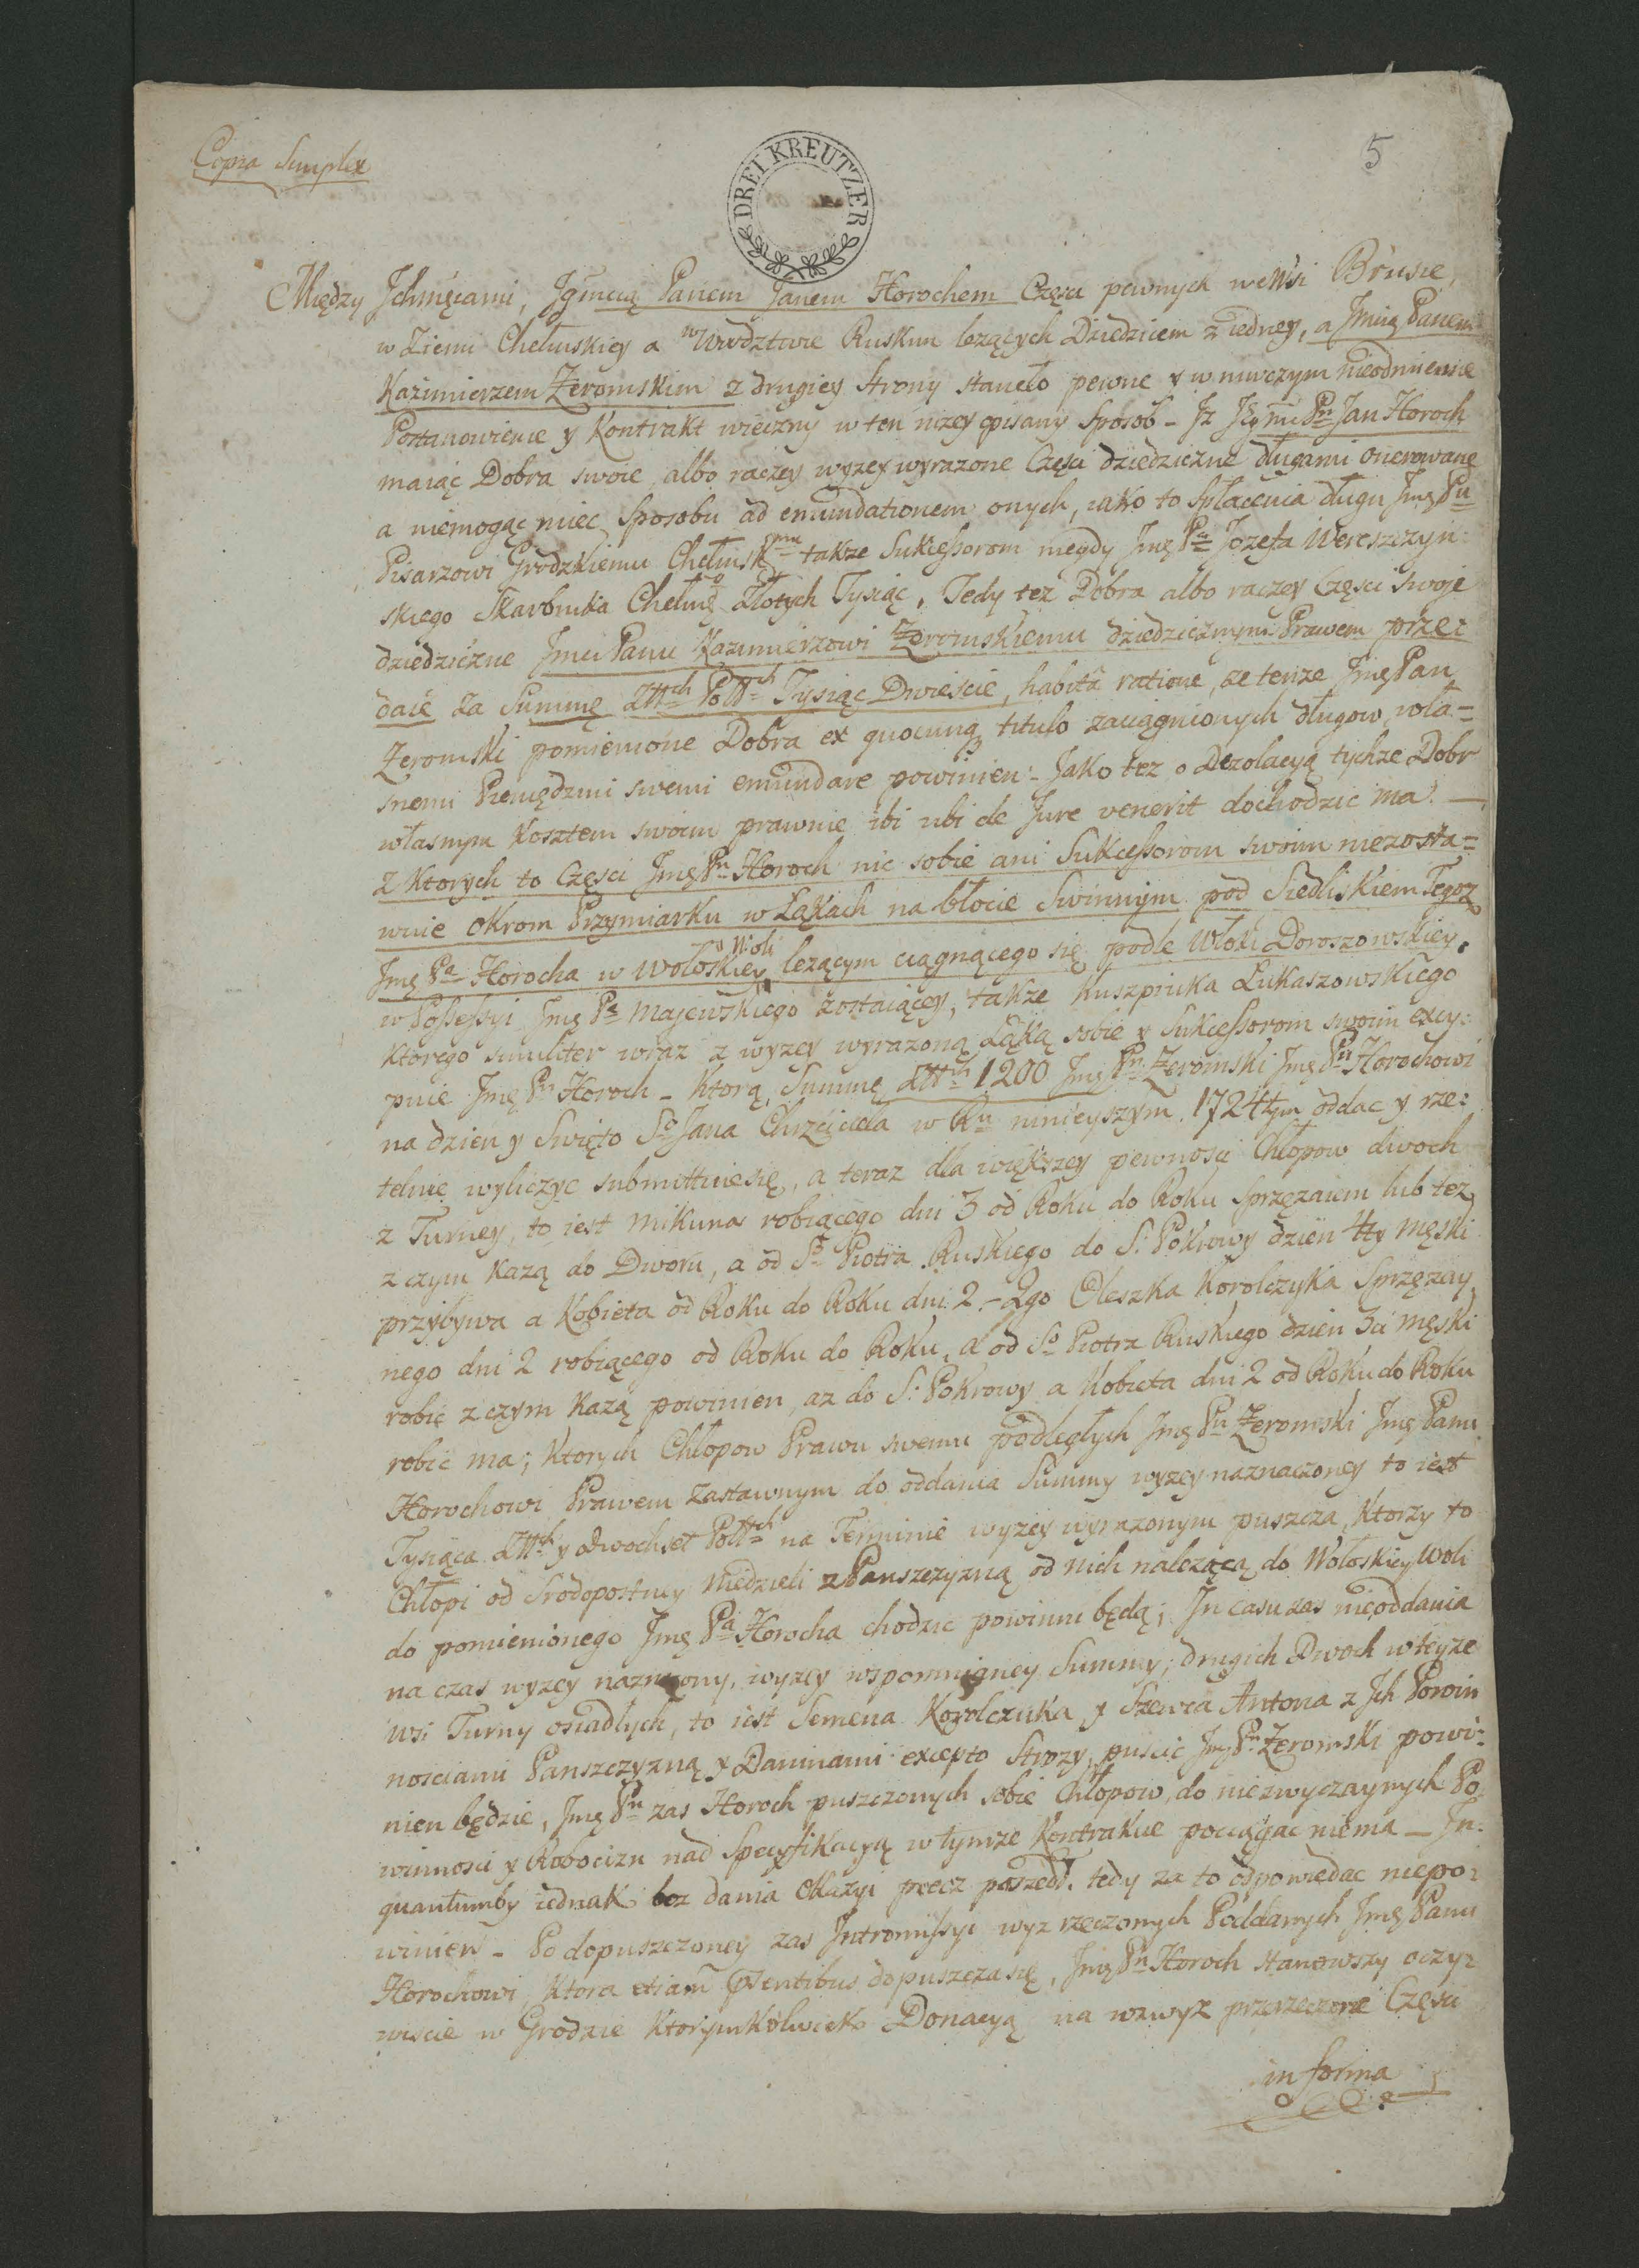 Copia Simplex
DREI KREUTZER
5
Między Ichmęciami, Jgmcią Panem Janem Horochem Częsci pewnych we Wsi Brusie,
w Ziemi Chełmskiey a w Wwdztwie Ruskim lezących Dziedzicem z iedney, a Jmcią Panem
Kazimierzem Zeromskim z drugiey Strony staneło pewne y w niwczym nieodmienne
Postanowienie y Kontrakt wieczny w ten nizey opisany Sposob - Jz Jgmc Pn Jan Horoch
maiąc Dobra swoie albo raczey wyzey wyrazone Częsci dziedziczne długami onerowane
a niemogąc miec Sposobu ad emundationem onych, iako to Spłacenia długu Jmę Pu
Pisarzowi Grodzkiemu Chełmskmu takze Sukcessorom niegdy Jmę Pa Jozefa Wereszczyn:
skiego Skarbnika Chełmgo Złotych Tysiąc, Tedy tez Dobra albo raczey Częsci swoje
dziedziczne Jmci Panu Kazimierzowi Zeromskiemu dziedzicznym Prawem prze:
daie za Summę Złłch Polłch Tysiąc Dwiescie, habitâ ratione, ze tenze Jmę Pan
Zeromski pomienione Dobra ex quocunq titulo zaciągnionych długow, wła=
snemi Pieniędzmi swemi emundare powinien - Jako tez o Dezolacyą tychze Dobr
własnym Kosztem swoim prawnie ibi ubi de Jure venerit dochodzic ma. —
z Ktorych to Częsci Jmę Pn Horoch nic sobie ani Sukcessorom swoim niezosta=
wuie okrom Przymiarku w Łąkach na błocie Swinnym pod Siedliskiem Tegoz
Jmę Pa Horocha w Wołoskiey Woli lezącym ciągnącego się podle Włoki Doroszowskiey,
w Possessyi Jmę Pa Majewskiego zostaiącey, takze Kuszpiuka Łukaszowskiego
ktorego similiter wraz z wyzey wyrazoną Łąką sobie y Sukcessorom swoim excy:
puie Jmę Pn Horoch - Ktorą Summę Złłch 1200 Jmę Pn Zeromski Jmę Pu Horochowi
na dzien y Swięto So Jana Chrzciciela w Ru ninieyszym 1724tym oddac y rze:
telnie wyliczyc submittuie się, a teraz dla większey pewnosci Chłopow dwoch
z Turney, to iest Mikuna robiącego dni 3 od Roku do Roku Sprzęzaiem lub tez
z czym Kazą do Dworu, a od So Piotra Ruskiego do S: Pokrowy dzien 4ty męski
przybywa a Kobieta od Roku do Roku dni 2 - 2go Oleszka Korolczyka Sprzęzay
nego dni 2 robiącego od Roku do Roku, a od So Piotra Ruskiego dzien 3ci męski
robic z czym Kazą powinien, az do S: Pokrowy a Kobieta dni 2 od Roku do Roku
robic ma; Ktorych Chłopow Prawu swemu podległych Jmę Pn Zeromski Jmę Panu
Horochowi Prawem Zastawnym do oddania Summy wyzey naznaczoney to iest
Tysiąca Złłch y dwochset Polłch na Terminie wyzey wyrazonym puszcza, Ktorzy to
Chłopi od Srodopostney Niedzieli z Panszczyzną od nich nalezącą do Wołoskiey Woli
do pomienionego Jmę Pa Horocha chodzic powinni będą; In casu zas nieoddania
na czas wyzey naznaczony, wyzey wspomnianey Summy, drugich Dwoch w teyze
Wsi Turny osiadłych, to iest Semena Korolczuka y Szewca Antona z Jch Powin
nosciami Panszczyzną y Daninami excepto Strozy, puscic Jmę Pn Zeromski powi:
nien będzie, Jmę Pn zas Horoch puszczonych sobie Chłopow, do niezwyczaynych Po
winnosci y Robocizn nad Specyfikacyą w tymze Kontrakcie pociągac niema — In
quantumby iednak bez dania Okazyi precz poszedł, tedy za to odpowiedac niepo:
winien - Po dopuszczoney zas Intromissyi wyz rzeczonych Poddanych Jmę Panu
Horochowi, Ktora etiam psentibus dopuszcza się, Jmę Pn Horoch stanowszy oczy:
wiscie w Grodzie Ktorymkolwiek Donacyą na wzwyz przerzeczone Częsci
in forma